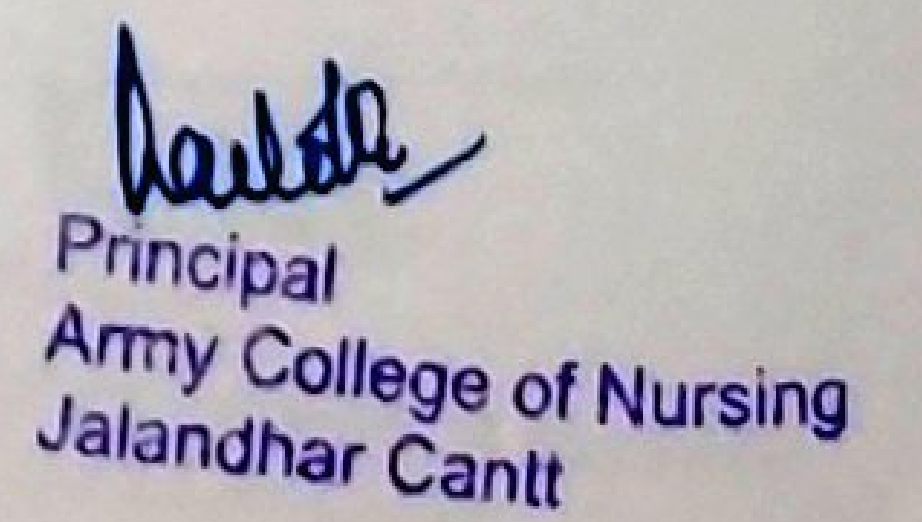 Principal
Army College of Nursing
Jalandhar Cantt